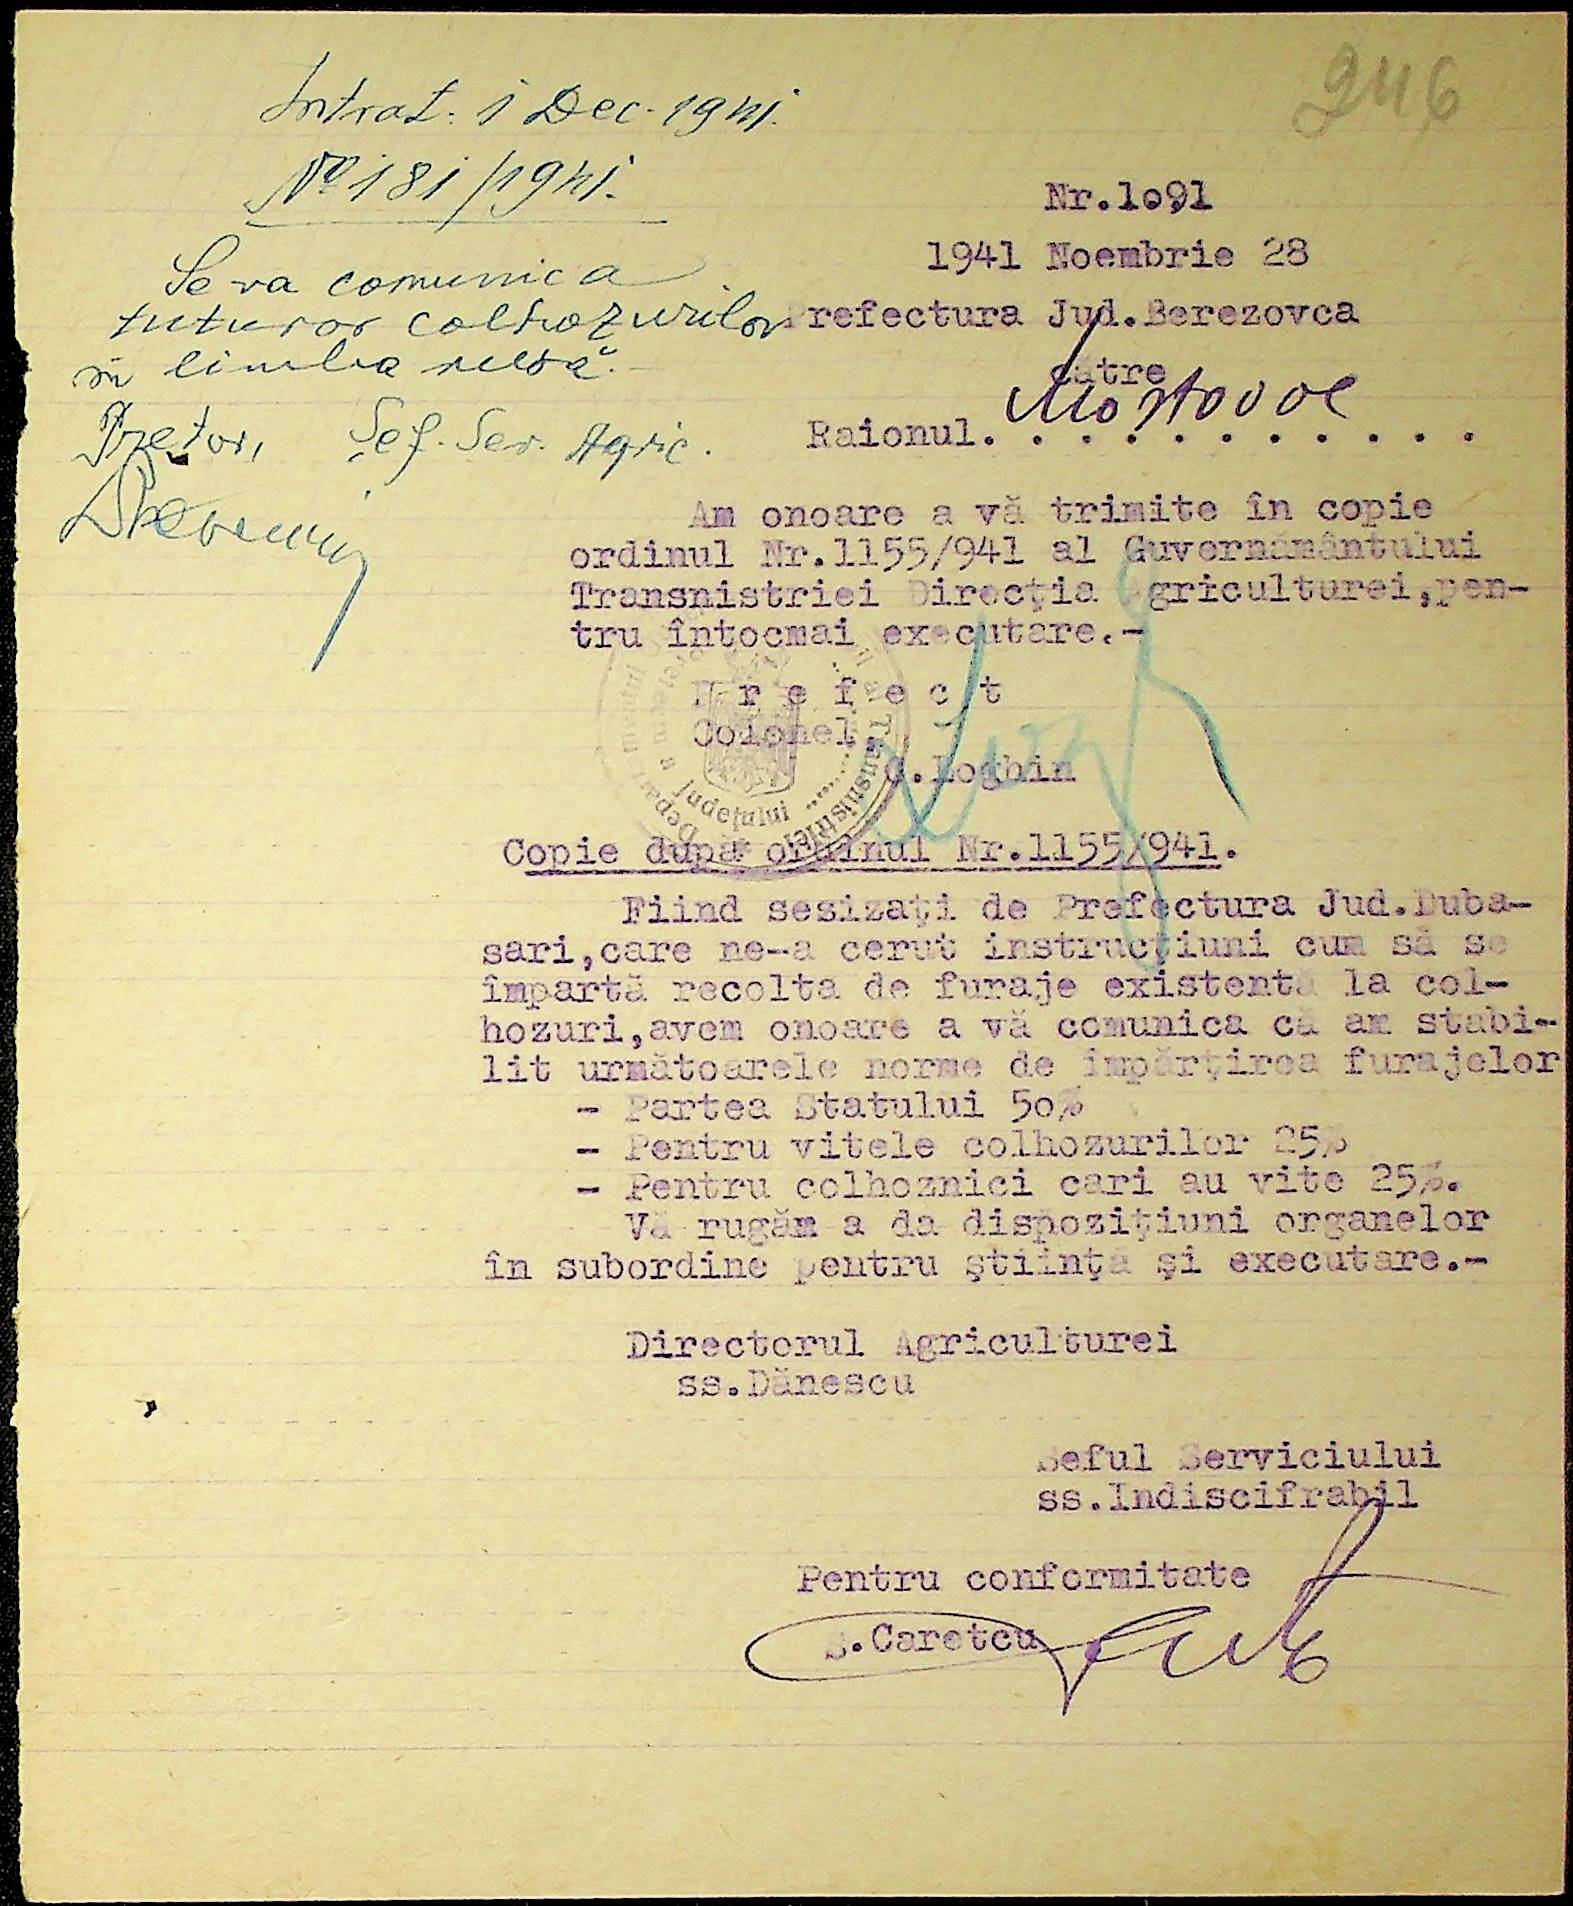 246
Intrat. 1 Dec. 1941.
No 181/1941.
Se va comunica
tuturor colhozurilor
în limba rusă.
Pretor, Şef. Ser. Agric.
Nr.1o91
1941 Noembrie 28
Prefectura Jud.Berezovca
către
Raionul. Mostovoe . . . . . . . . . .
Am onoare a vă trimite în copie
ordinul Nr.1155/941 al Guvernământului
Transnistriei Direcţia Agriculturei,pen-
tru întocmai executare.-
P r e f e c t
Colonel,
C.Loghin
Transnistriei
Judeţului
Copie după ordinul Nr.1155/941.
Fiind sesizaţi de Prefectura Jud.Duba-
sari,care ne-a cerut instrucţiuni cum să se
împartă recolta de furaje existentă la col-
hozuri,avem onoare a vă comunica că am stabi-
lit următoarele norme de impărţirea furajelor
- Partea Statului 5o%
- Pentru vitele colhozurilor 25%
- Pentru colhoznici cari au vite 25%.
Vă rugăm a da dispoziţiuni organelor
în subordine pentru ştiinţă şi executare.-
Directorul Agriculturei
ss.Dănescu
Seful Serviciului
ss.Indiscifrabil
Pentru conformitate
S.Caretcu